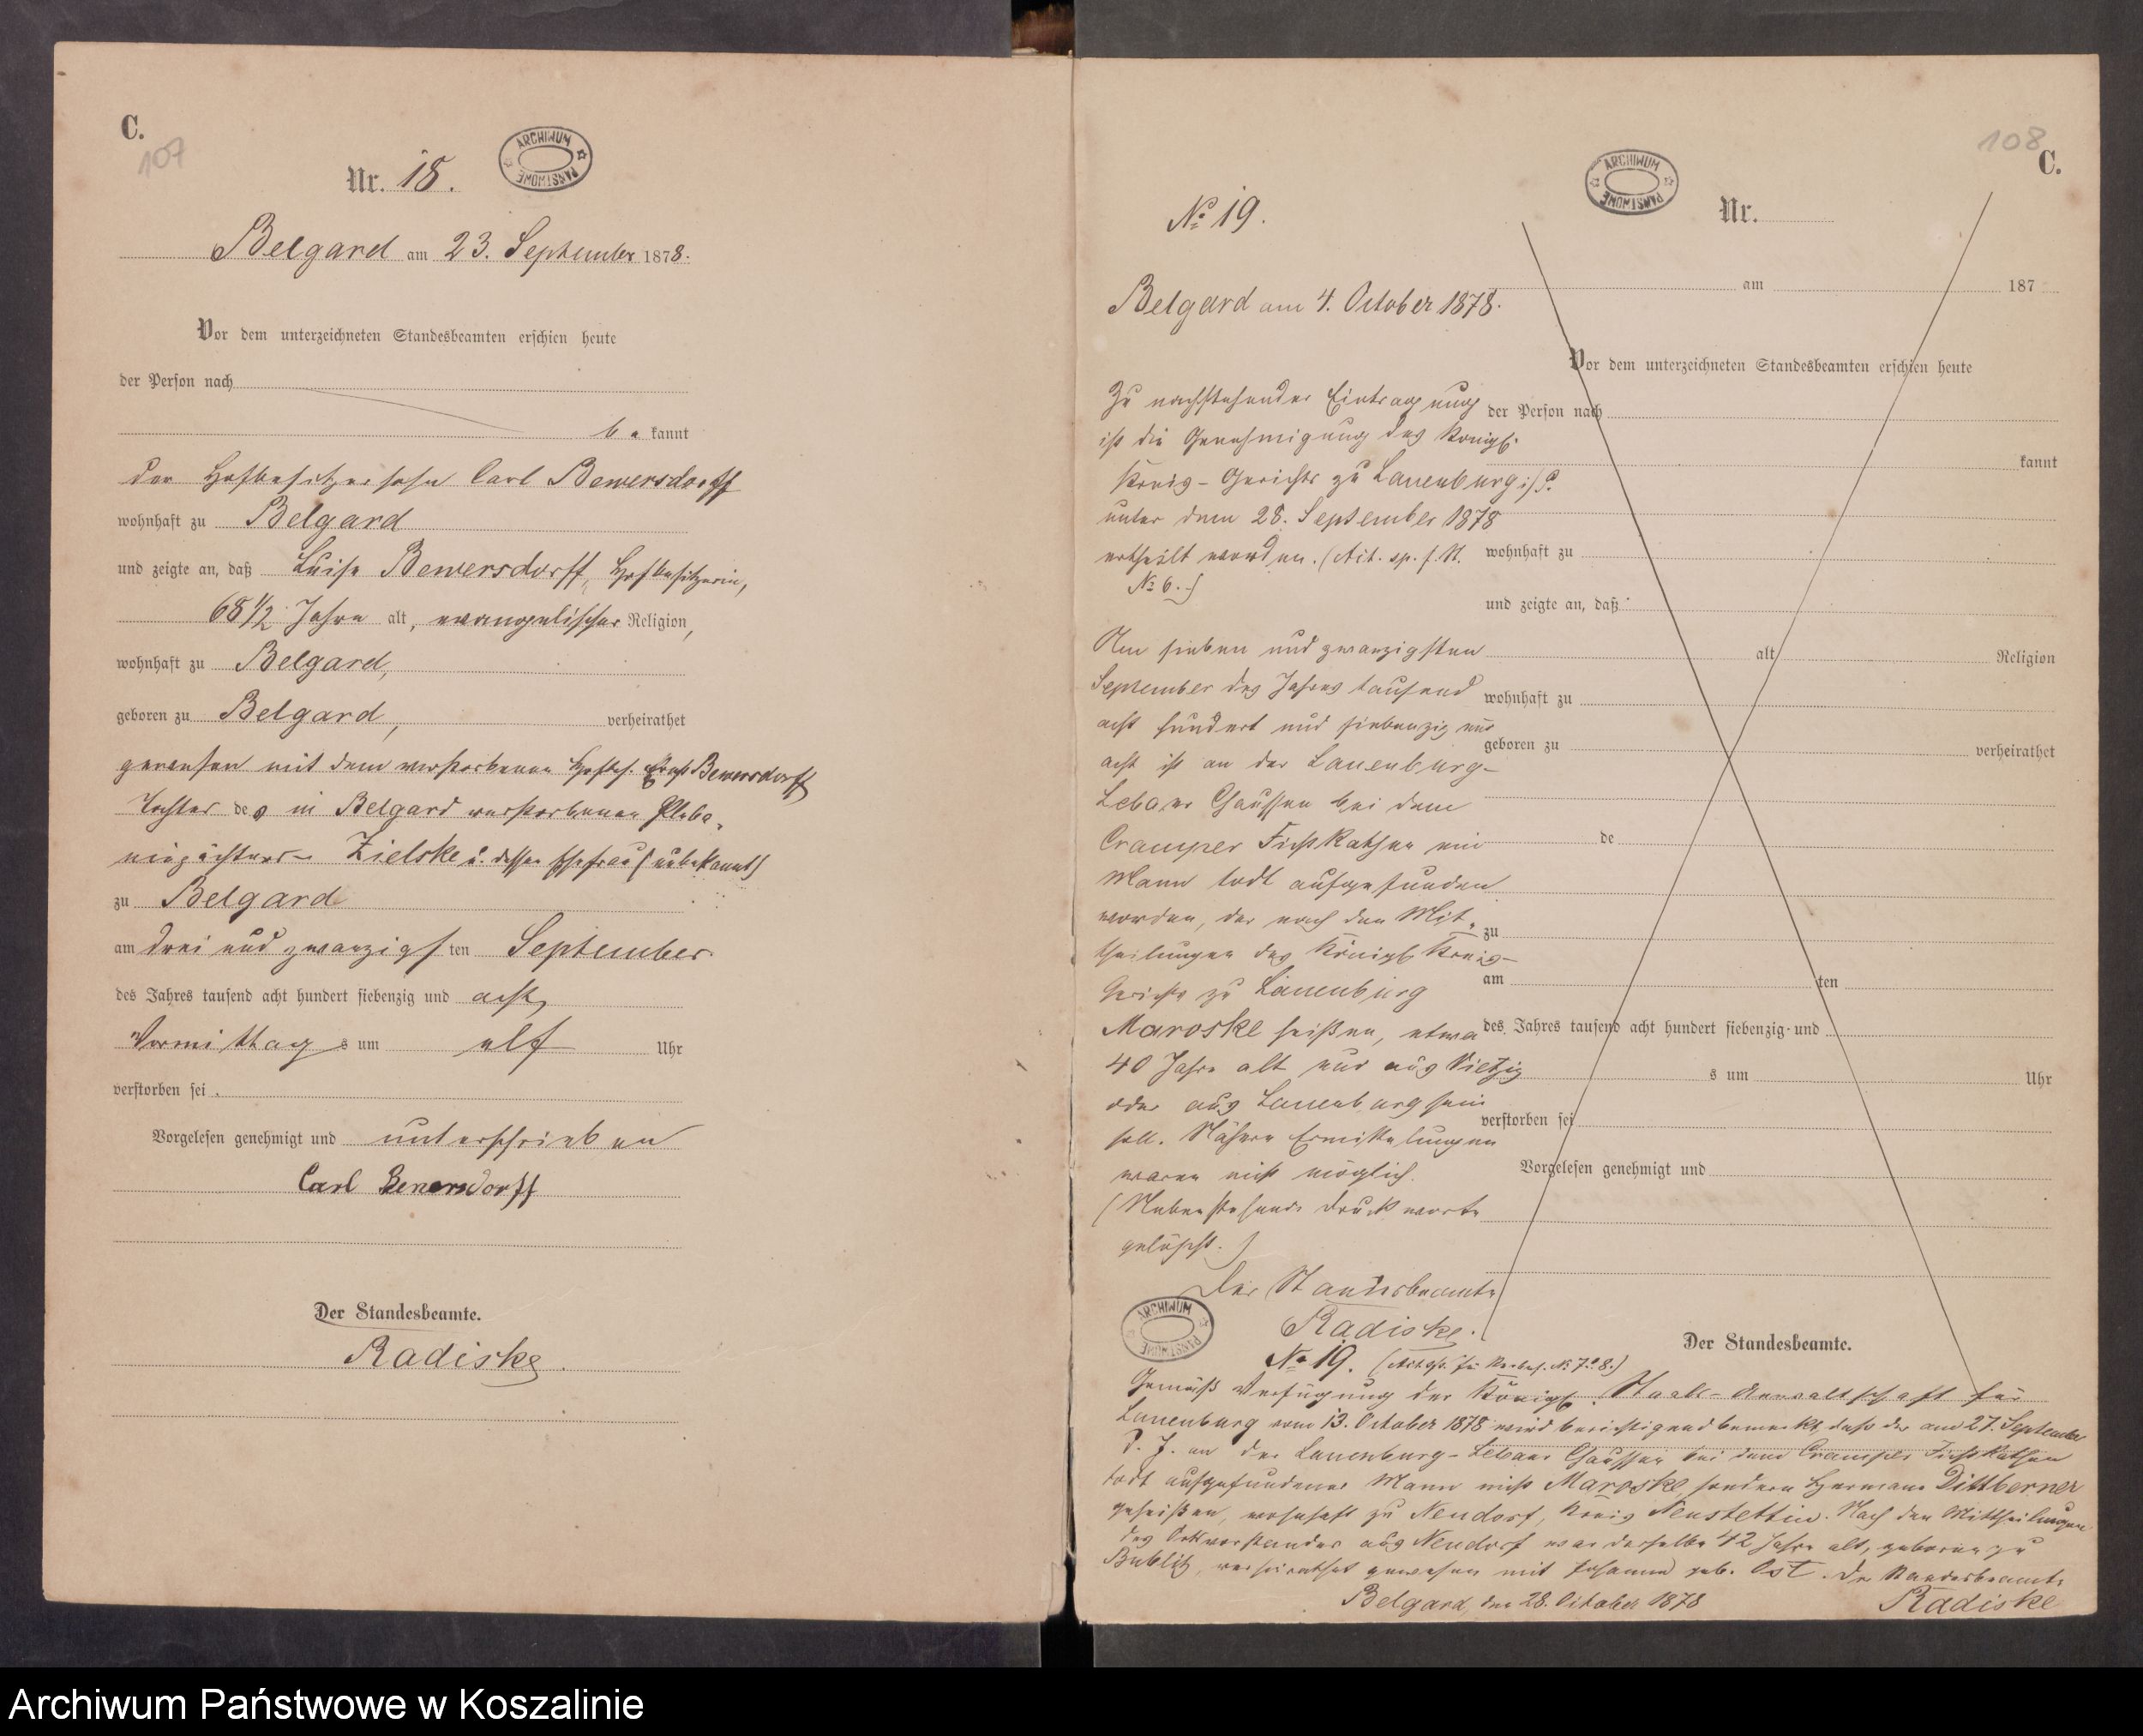 C.
107
Nr. 18.
ARCHIWUM PAŃSTWOWE
Belgard am 23. September 1878.
Vor dem unterzeichneten Standesbeamten erschien heute
der Person nach
be kannt
der Hofbesitzersohn Carl Bewersdorff
wohnhaft zu Belgard
und zeigte an, daß Luise Bewersdorff, Hofbesitzerin,
68 1/2 Jahre alt, evangelischer Religion,
wohnhaft zu Belgard,
geboren zu Belgard, verheirathet
gewesen mit dem verstorbenen Hofbes. Bewersdorff
Tochter des in Belgard verstorbenen
Zielske u. dessen Ehefrau (unbekannt)
zu Belgard
am drei und zwanzigsten September
des Jahres tausend acht hundert siebenzig und acht,
Vormittags um elf Uhr
verstorben sei.
Vorgelesen genehmigt und unterschrieben
Carl Bewersdorff
Der Standesbeamte.
Radiske.
108
C.
ARCHIWUM PAŃSTWOWE
Nr.
am 187
Vor dem unterzeichneten Standesbeamten erschien heute
der Person nach
kannt
wohnhaft zu
und zeigte an, daß
alt Religion
wohnhaft zu
geboren zu verheirathet
de
zu
am ten
des Jahres tausend acht hundert siebenzig und
s um Uhr
verstorben sei
Vorgelesen genehmigt und
Der Standesbeamte.
No 19.
Belgard am 4. October 1878.
Zu nachstehender Eintragung
ist die Genehmigung des Königl.
Kreis-Gerichts zu Lauenburg i/P.
unter dem 28. September 1878
ertheilt worden.
No 6.)
Am sieben und zwanzigsten
September des Jahres tausend
acht hundert und siebenzig und
acht ist an der Lauenburg-
Lebaer Chaussee bei dem
Cramper Fichtkathen ein
Mann todt aufgefunden
worden, der nach den Mit-
theilungen des Königl. Kreis-
Gerichts zu Lauenburg
Maroske heißen, etwa
40 Jahre alt und aus Vietzig
oder aus Lauenburg sein
soll. Nähere Ermittelungen
waren nicht möglich.
(Nebenstehende Druckworte
gelöscht.)
Der Standesbeamte
Radiske.
ARCHIWUM PAŃSTWOWE
No 19.
Gemäß Verfügung der Königl. Staats-Anwaltschaft für
Lauenburg vom 13. October 1878 wird berichtigend bemerkt, daß der am 27. September
d. J. an der Lauenburg-Lebaer Chaussee bei dem Cramper Fichtkathen
todt aufgefundene Mann nicht Maroske, sondern Hermann Dittberner
geheißen, wohnhaft zu Neudorf, Kreis Neustettin. Nach den Mittheilungen
des Ortsvorstandes aus Neudorf war derselbe 42 Jahre alt, geboren zu
Bublitz, verheirathet gewesen mit Johanne geb. Ost. Der Standesbeamte
Belgard, den 28. October 1878 Radiske
Archiwum Państwowe w Koszalinie